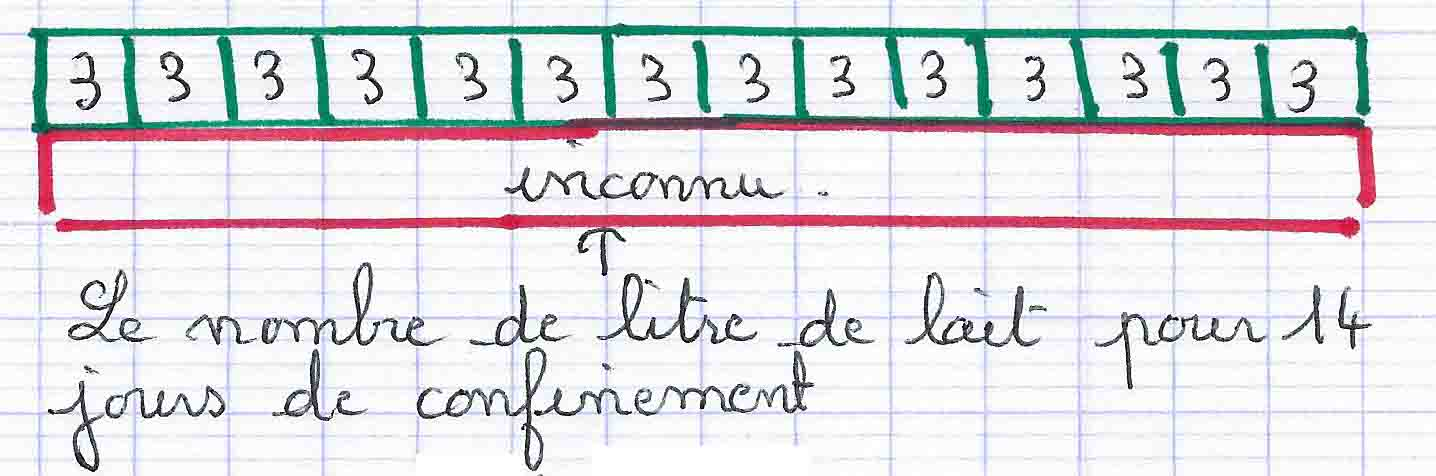 3 3 3 3 3 3 3 3 3 3 3 3 3 3
inconnu.
↑
Le nombre de litre de lait pour 14
jours de confinement